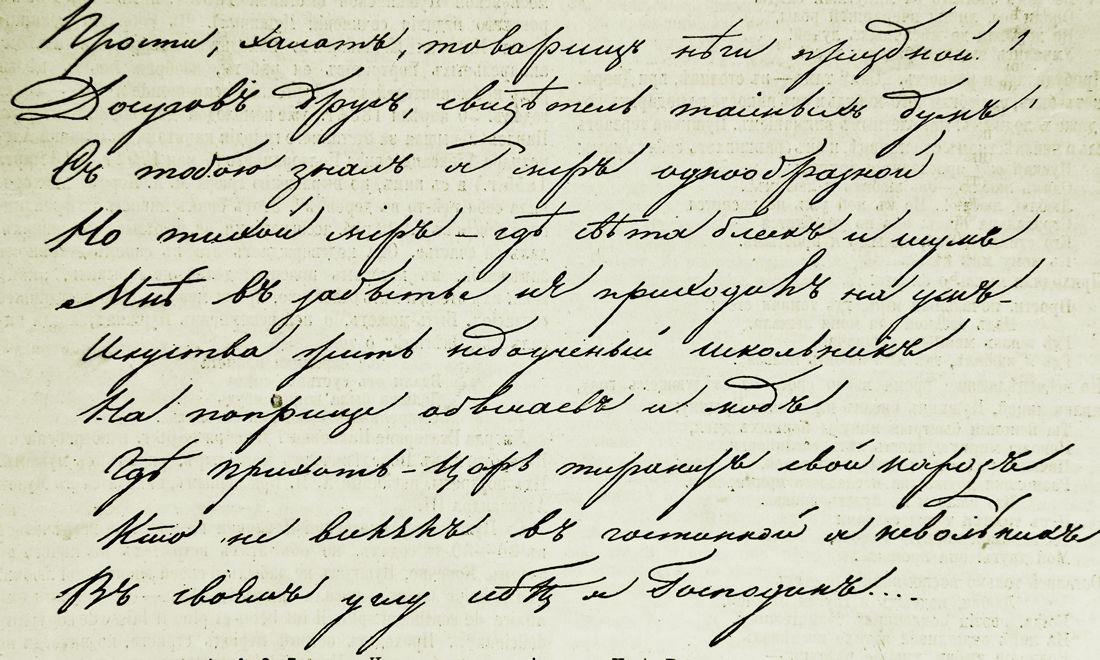 Прости, халатъ, товарищъ нѣги праздной!
Досуговъ другъ, свидѣтель тайныхъ думъ!
Съ тобою зналъ я миръ однообразной
Но тихой миръ – гдѣ свѣта блескъ и шумъ
Мнѣ въ забытье не приходилъ на умъ –
Искуства жить недоученый школьникъ
На поприще обычаевъ и модъ
Гдѣ прихоть – Царь тиранитъ свой народъ
Кто не виленъ въ гостинной я невольникъ
Въ своемъ углу себѣ я Господинъ....